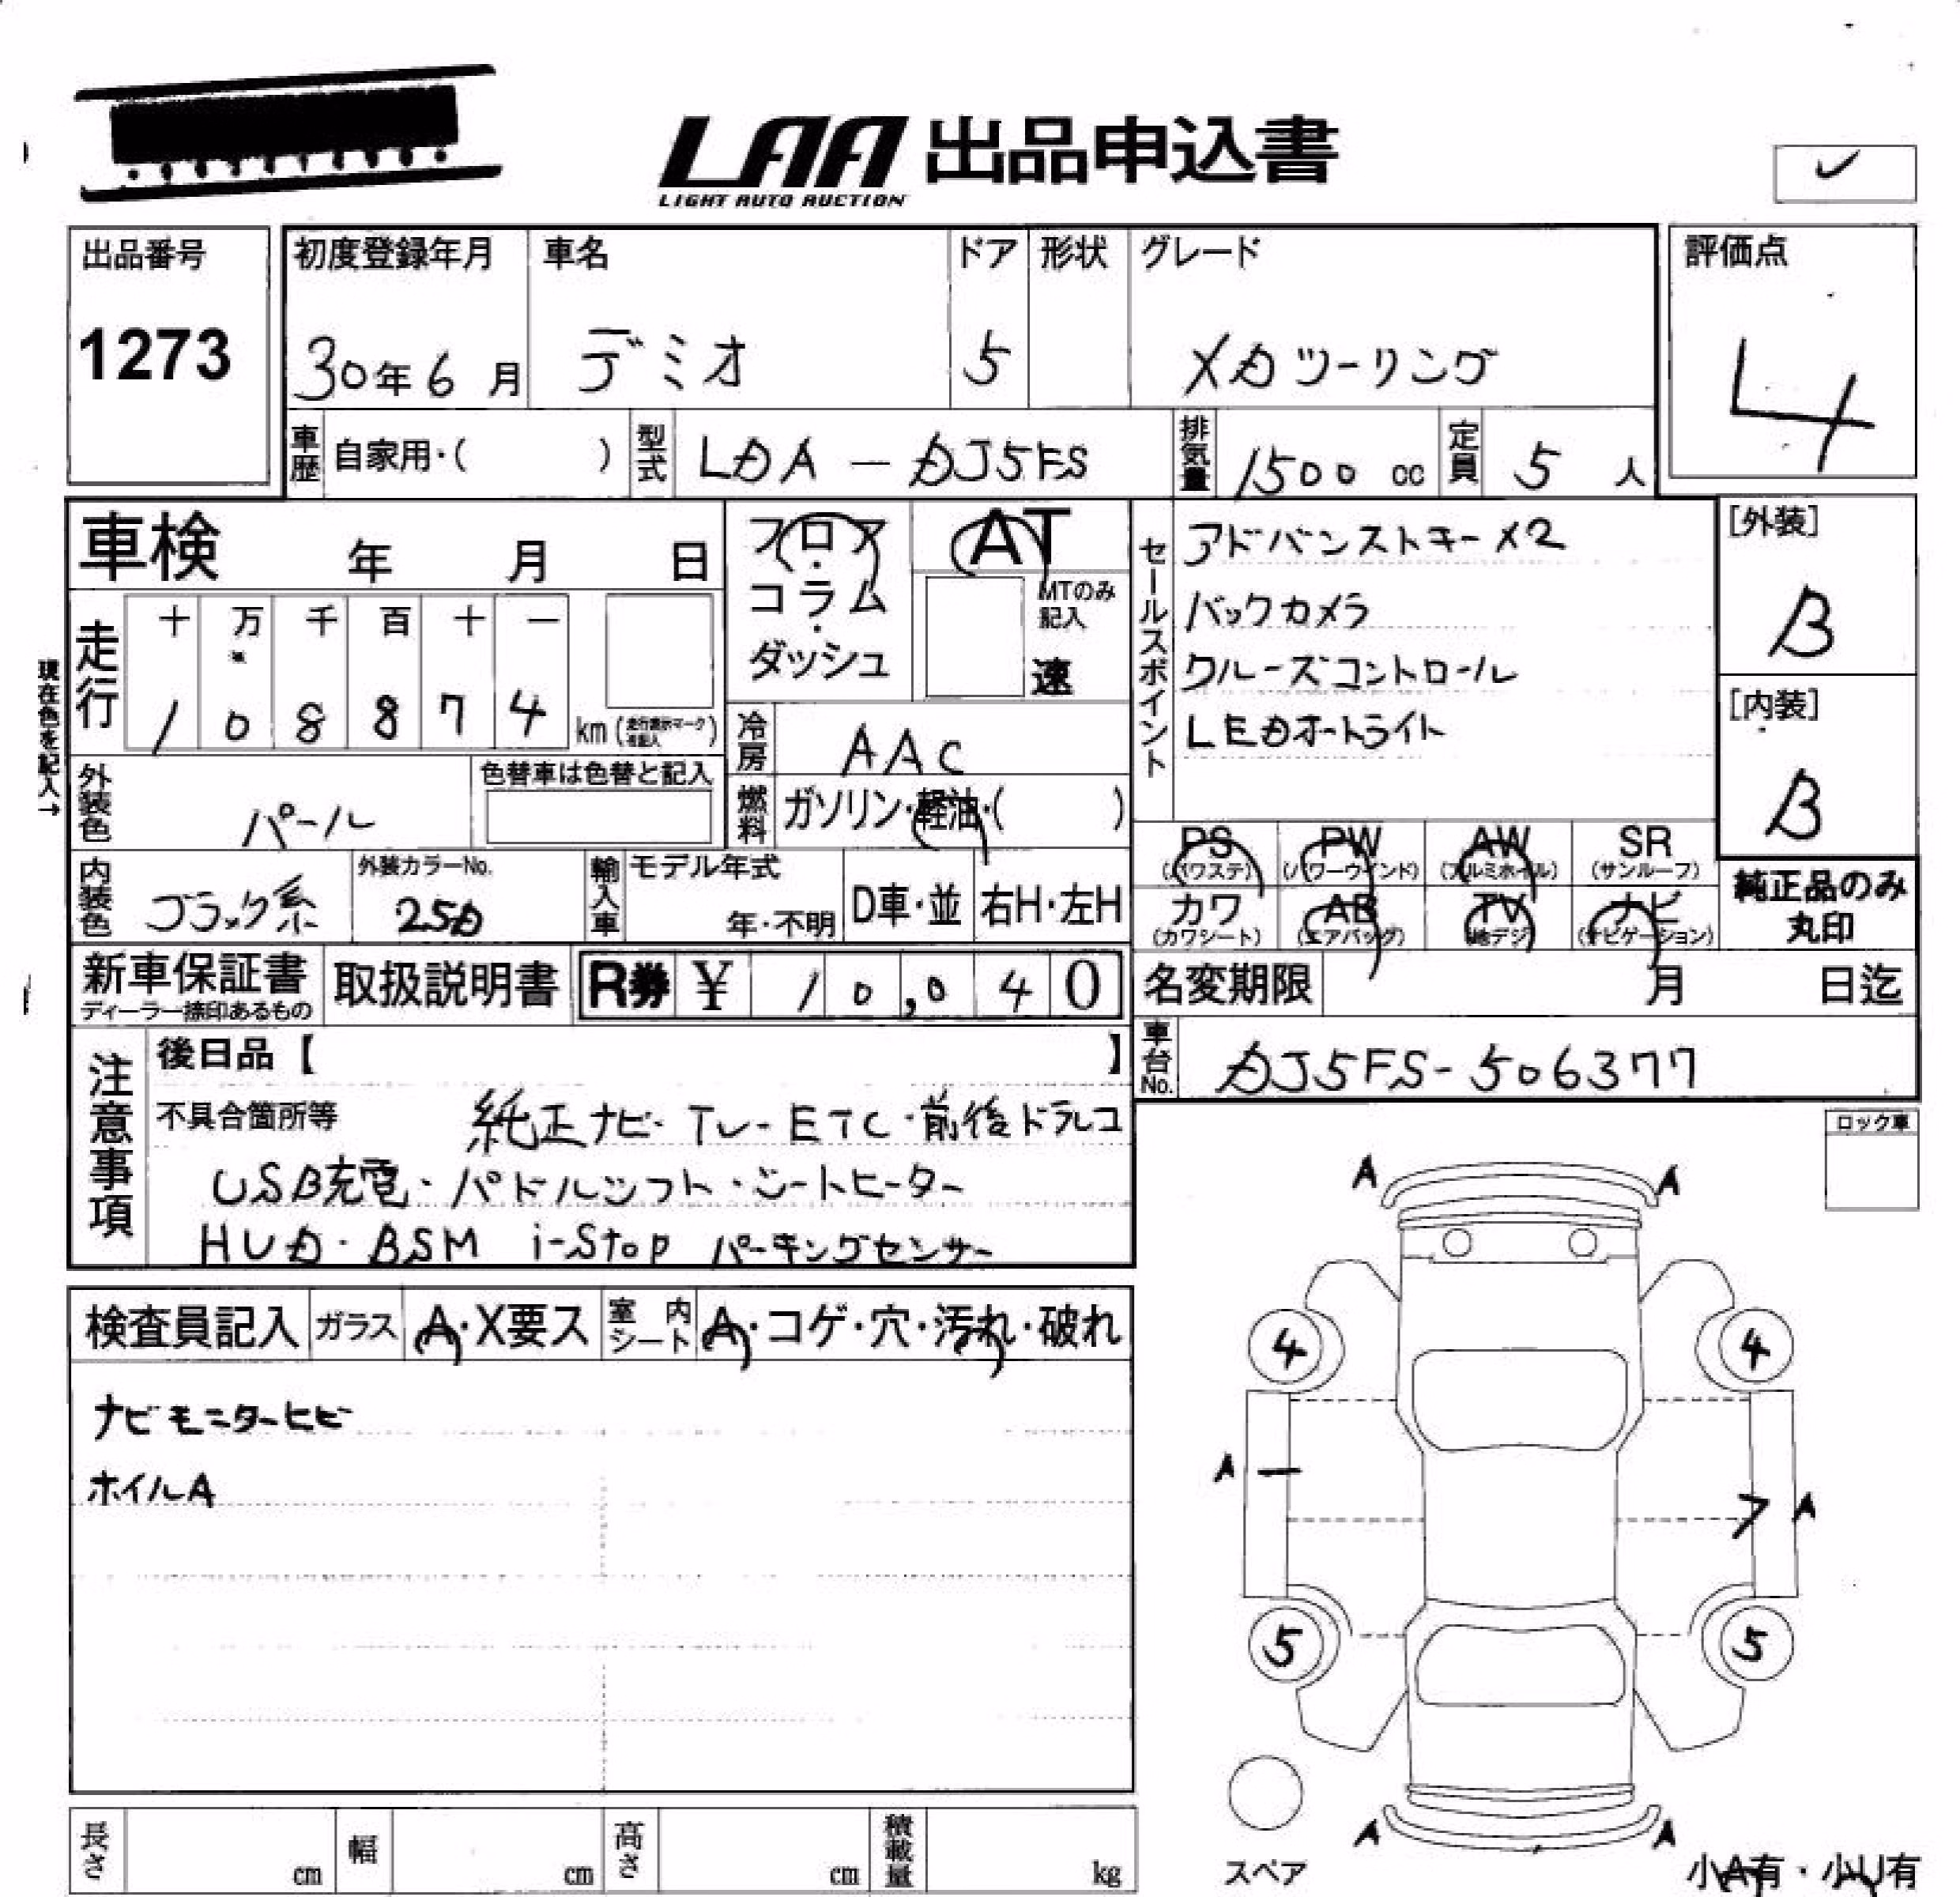 LAA 出品申込書
LIGHT AUTO AUCTION
出品番号
1273
初度登録年月 車名 ドア 形状 グレード
30年6月 デミオ 5 メカツーリング
評価点
4
車歴 自家用・( ) 型式 LDA-DJ5FS 排気量 1500 cc 定員 5 人
車検 年 月 日
フロア・コラム・ダッシュ
AT
MTのみ記入
速
セールスポイント
アドバンストキー×2
バックカメラ
クルーズコントロール
LEDオートライト
[外装]
B
[内装]
B
現在色を記入→
走行 十 万 千 百 十 一
1 0 8 8 7 4 km (走行表示マーク有記入)
冷房 AAC
外装色 パール 色替車は色替と記入
燃料 ガソリン・軽油・( )
PS (パワステ) PW (パワーウインド) AW (アルミホイル) SR (サンルーフ)
カワ (カワシート) AB (エアバッグ) TV (地デジ) ナビ (ナビゲーション)
純正品のみ丸印
内装色 ブラック系 外装カラーNo. 25D 輸入車 モデル年式 年・不明 D車・並 右H・左H
新車保証書 ディーラー捺印あるもの 取扱説明書 R券 ¥ 10,040
名変期限 月 日迄
車台No. DJ5FS-506377
注意事項
後日品【 】
不具合箇所等 純正ナビ・TV・ETC・前後ドラレコ
USB充電・パドルシフト・シートヒーター
HUD・BSM i-Stop パーキングセンサー
ロック車
検査員記入 ガラス A・X要ス 室内シート A・コゲ・穴・汚れ・破れ
ナビモニターヒビ
ホイルA
A A
4 4
A
A
5 5
A A
スペア
小A有・小U有
長さ cm 幅 cm 高さ cm 積載量 kg